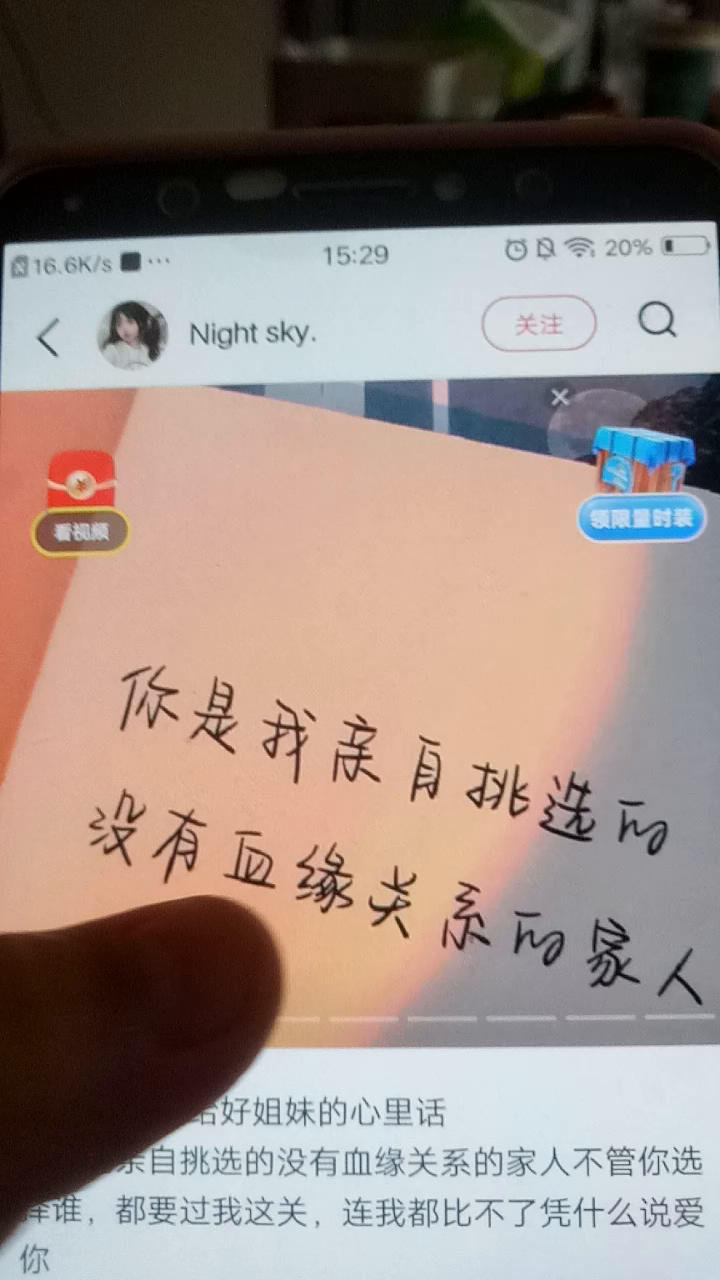 16.6K/s ... 15:29 20%
Night sky. 关注
看视频
领限量时装
你是我亲自挑选的
没有血缘关系的家人
给好姐妹的心里话
亲自挑选的没有血缘关系的家人不管你选
择谁，都要过我这关，连我都比不了凭什么说爱
你